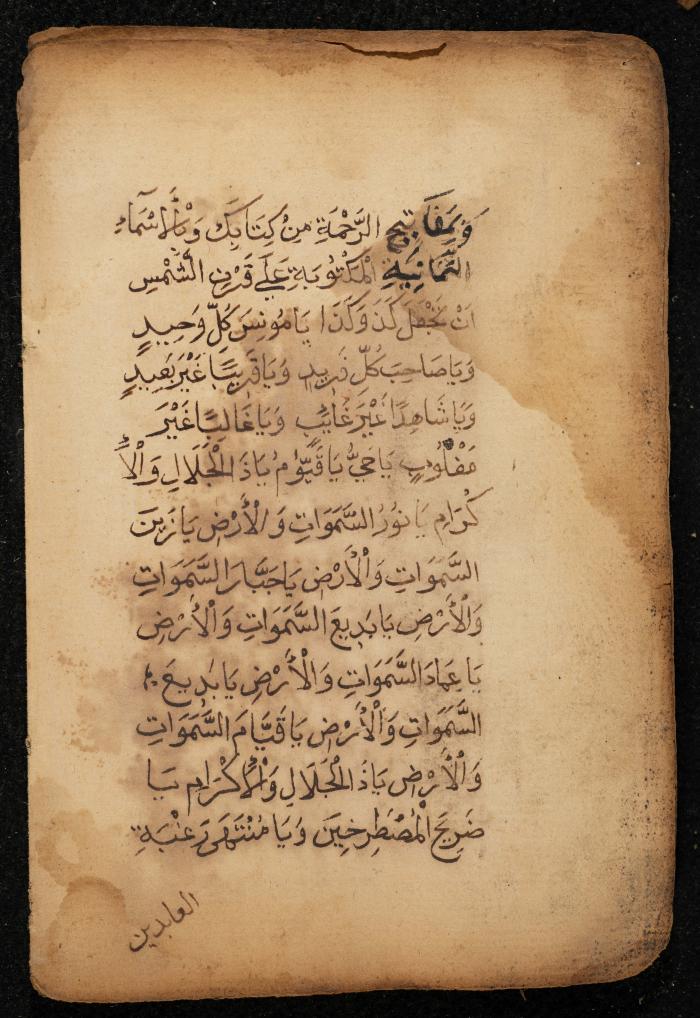 وَبِمَفَاتِيحِ الرَّحْمَةِ مِنْ كِتَابِكَ وَبِالْاَسْمَاءِ
الثَّمَانِيَةِ الْمَكْتُوبَةِ عَلَى قَرْنِ الشَّمْسِ
اَنْ تَجْعَلَ كَذَ وَكَذَا يَا مُونِسَ كُلِّ وَحِيدٍ
وَيَا صَاحِبَ كُلِّ فَرِيدٍ وَيَا قَرِيبًا غَيْرَ بَعِيدٍ
وَيَا شَاهِدًا غَيْرَ غَايَبٍ وَيَا غَالِبًا غَيْرَ
مَغْلُوبٍ يَا حَيُّ يَا قَيُّوْمُ يَا ذَ الْجَلَالِ وَالْاِ
كْرَامِ يَا نُورُ السَّمَوَاتِ وَالْأَرْضِ يَا زَيْنَ
السَّمَوَاتِ وَالْأَرْضِ يَا جَبَّارَ السَّمَوَاتِ
وَالْأَرْضِ يَا بَدِيعَ السَّمَوَاتِ وَالْأَرْضِ
يَا عِمَادَ السَّمَوَاتِ وَالْأَرْضِ يَا بَدِيعَ
السَّمَوَاتِ وَالْأَرْضِ يَا قَيَّامَ السَّمَوَاتِ
وَالْأَرْضِ يَا ذَ الْجَلَالِ وَالْاِكْرَامِ يَا
ضَرِيحَ الْمُصْطَرِخِينَ وَيَا مُنْتَهَى رَغْبَةِ
العابدين